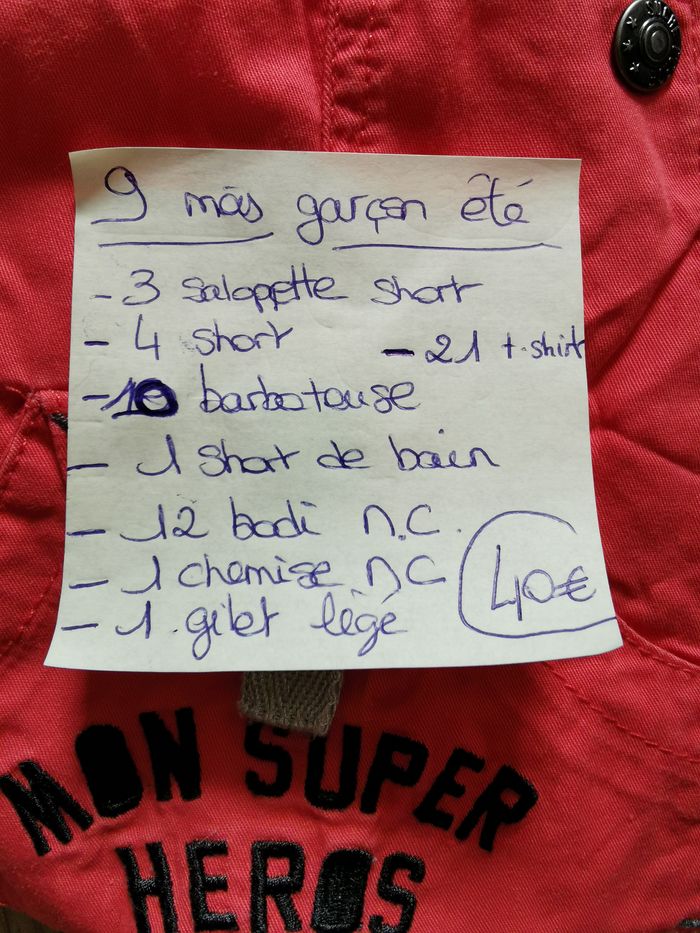 9 mois garçon été
- 3 salopette short
- 4 short - 21 t-shirt
- 10 barboteuse
- 1 short de bain
- 12 bodi n.c.
- 1 chemise n c
- 1 gilet légé
40€
MON SUPER
HEROS